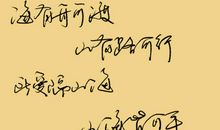 海有舟可渡
山有路可行
此爱隔山海
山海皆可平